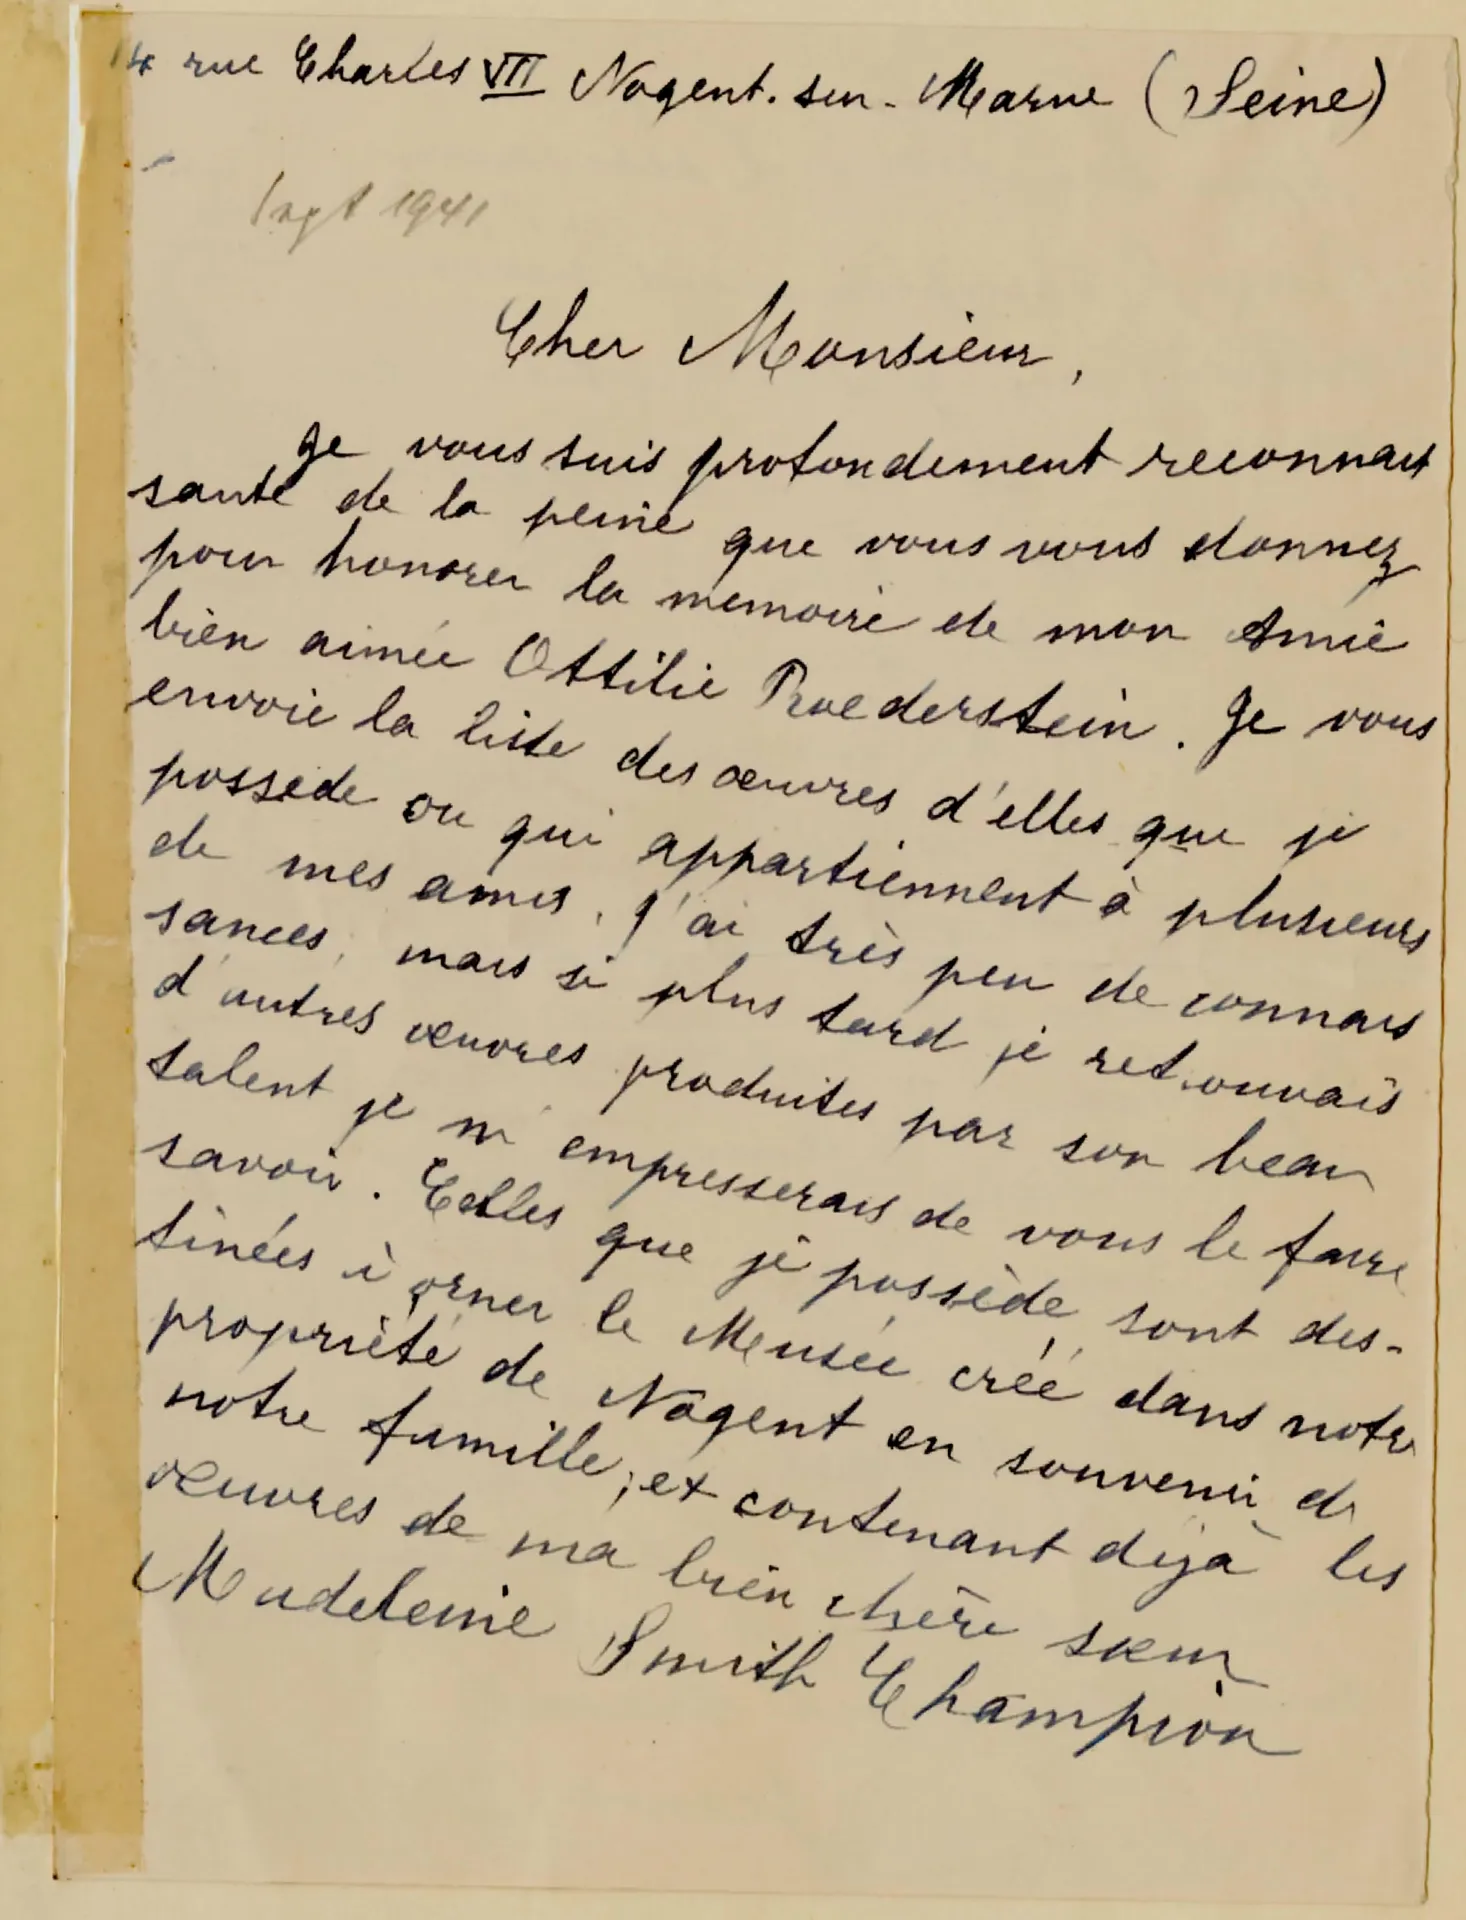 14 rue Charles VII Nogent. sur - Marne (Seine)
Sept 1941
Cher Monsieur,
Je vous suis profondement reconnais
sante de la peine que vous vous donnez
pour honorer la memoire de mon Amie
bien aimée Ottilie Roederstein. Je vous
envoie la liste des œuvres d'elles que je
possede ou qui appartiennent à plusieurs
de mes amis. J'ai très peu de connais
sances, mais si plus tard je retrouvais
d'autres œuvres produites par son beau
talent je m'empresserais de vous le faire
savoir. Celles que je possède sont des-
tinées à orner le Musée créé dans notre
propriété de Nogent en souvenir de
notre famille, et contenant déjà les
œuvres de ma bien chère sœur
Madeleine Smith Champion